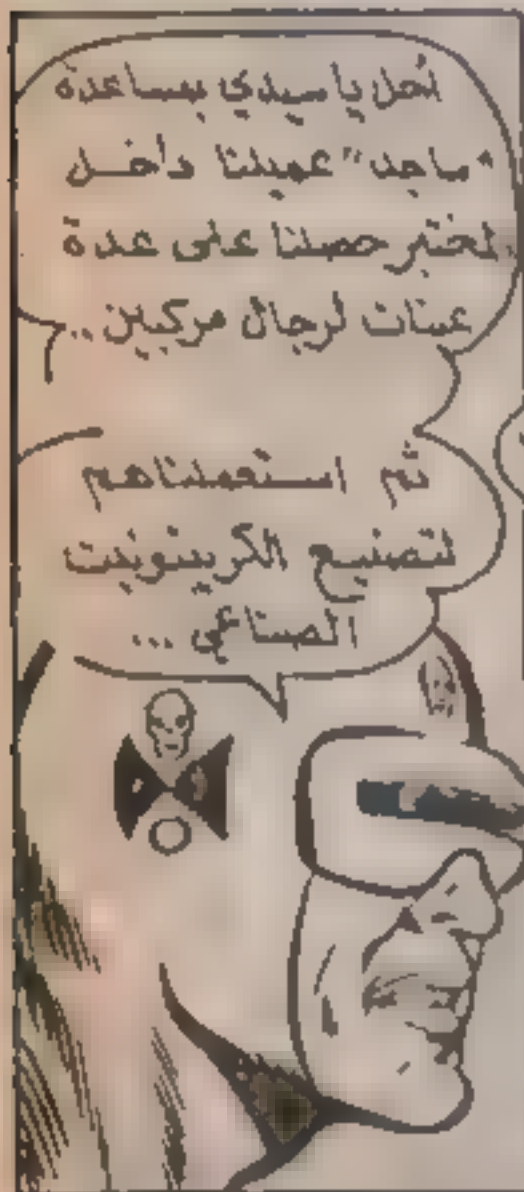 نحل يا سيدي بمساعدة
"ماجد" عميلنا داخل
لمختبر حصلنا على عدة
عينات لرجال مركبين ..
ثم استعملناهم
لتصنيع الكريبتونيت
الصناعي ...